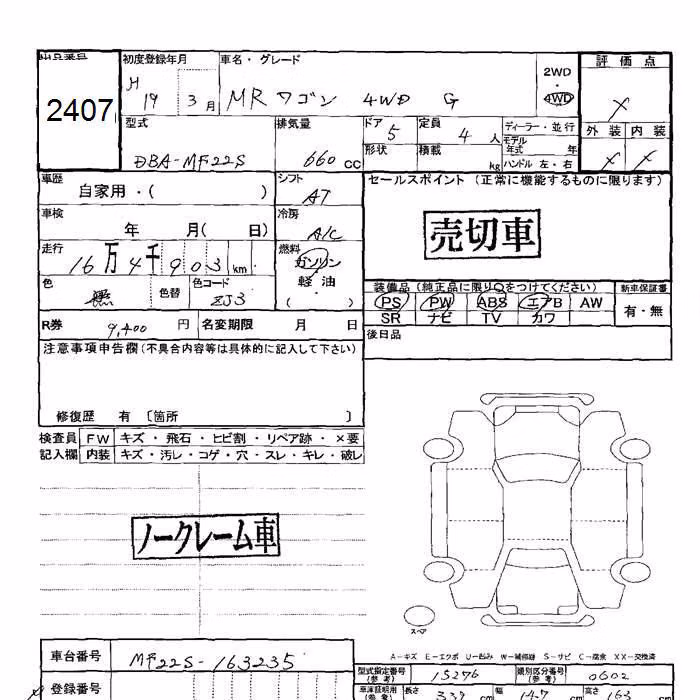 出品番号
2407
初度登録年月
H 19 3月
車名・グレード
MRワゴン 4WD G
2WD
・
4WD
評価点
X
外装 内装
X X
型式
DBA-MF22S
排気量
660 CC
ドア 5
定員 4 人
形状
積載 kg
ディーラー・並行
モデル年式 年
ハンドル 左・右
車歴
自家用・( )
シフト
AT
セールスポイント (正常に機能するものに限ります)
売切車
車検
年 月( 日)
冷房
A/C
走行
16万4千903km
燃料
ガソリン
軽油
( )
色
黒
色替
色コード
ZJ3
装備品(純正品に限り○をつけてください)
PS PW ABS エアB AW
SR ナビ TV カワ
新車保証書
有・無
R券 9,400 円
名変期限 月 日
後日品
注意事項申告欄(不具合内容等は具体的に記入して下さい)
修復歴 有 〔箇所 〕
検査員 FW キズ・飛石・ヒビ割・リペア跡・×要
記入欄 内装 キズ・汚レ・コゲ・穴・スレ・キレ・破レ
ノークレーム車
スペア
A-キズ E-エクボ U-凹み W-補修跡 S-サビ C-腐食 XX-交換済
車台番号 MF22S-163235
型式指定番号(参考) 15276
類別区分番号(参考) 0602
登録番号
車庫証明用(参考) 長さ 339 cm 幅 147 cm 高さ 163